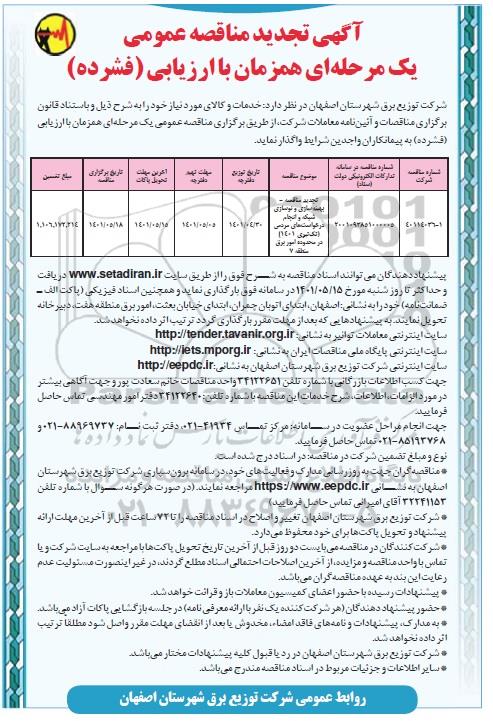 آگهی تجدید مناقصه عمومی
یک مرحله‌ای همزمان با ارزیابی (فشرده)
شرکت توزیع برق شهرستان اصفهان در نظر دارد: خدمات و کالای مورد نیاز خود را به شرح ذیل و باستناد قانون
برگزاری مناقصات و آئین‌نامه معاملات شرکت، از طریق برگزاری مناقصه عمومی یک مرحله‌ای همزمان با ارزیابی
(فشرده) به پیمانکاران واجدین شرایط واگذار نماید.
شماره مناقصه شرکت
شماره مناقصه در سامانه تدارکات الکترونیکی دولت (ستاد)
موضوع مناقصه
تاریخ توزیع دفترچه
مهلت تهیه دفترچه
آخرین مهلت تحویل پاکات
تاریخ برگزاری مناقصه
مبلغ تضمین
۴۰۱۱۴۰۳۶-۱
۲۰۰۱۰۹۳۸۵۱۰۰۰۰۰۵
تجدید مناقصه -
بهینه‌سازی و نوسازی
شبکه و انجام
درخواست‌های مردمی
(تک‌تیری ۱۴۰۱)
در محدوده امور برق
منطقه ۷
۱۴۰۱/۰۴/۳۰
۱۴۰۱/۰۵/۰۵
۱۴۰۱/۰۵/۱۵
۱۴۰۱/۰۵/۱۸
۱,۱۰۶,۱۷۲,۲۱۴
پیشنهاددهندگان می توانند اسناد مناقصه به شرح فوق را از طریق سایت www.setadiran.ir دریافت
و حداکثر تا روز شنبه مورخ ۱۴۰۱/۰۵/۱۵ در سامانه فوق بارگذاری نماید و همچنین اسناد فیزیکی (پاکت الف -
ضمانت‌نامه) خود را به نشانی: اصفهان، ابتدای اتوبان چمران، ابتدای خیابان بعثت، امور برق منطقه هفت، دبیرخانه
تحویل نمایند. به پیشنهادهایی که بعد از مهلت مقرر بارگذاری گردد ترتیب اثر داده نخواهد شد.
سایت اینترنتی معاملات توانیر به نشانی: http://tender.tavanir.org.ir
سایت اینترنتی پایگاه ملی مناقصات ایران به نشانی: http://iets.mporg.ir
سایت اینترنتی شرکت توزیع برق شهرستان اصفهان به نشانی: http://eepdc.ir
جهت کسب اطلاعات بازرگانی با شماره تلفن ۳۴۱۲۲۶۵۱ واحد مناقصات خانم سعادت پور و جهت آگاهی بیشتر
در مورد الزامات، اطلاعات، شرح خدمات این مناقصه با شماره تلفن: ۳۴۱۲۲۶۴۰ دفتر امور مهندسی تماس حاصل
فرمایید.
جهت انجام مراحل عضویت در سامانه: مرکز تماس ۴۱۹۳۴-۰۲۱ دفتر ثبت نام: ۸۸۹۶۹۷۳۷-۰۲۱ و
۸۵۱۹۳۷۶۸-۰۲۱ تماس حاصل فرمایید.
نوع و مبلغ تضمین شرکت در مناقصه: در اسناد درج شده است.
* مناقصه‌گران جهت به روز رسانی مدارک و فعالیت‌های خود، در سامانه برون سپاری شرکت توزیع برق شهرستان
اصفهان به نشانی https://www.eepdc.ir مراجعه نمایند. (در صورت هرگونه سوال با شماره تلفن
۳۲۲۴۱۱۵۳ آقای امیرانی تماس حاصل فرمایید)
* شرکت توزیع برق شهرستان اصفهان تغییر و اصلاح در اسناد مناقصه را تا ۷۲ ساعت قبل از آخرین مهلت ارائه
پیشنهاد و تحویل پاکت‌ها برای خود محفوظ می‌دارد.
* شرکت کنندگان در مناقصه می‌بایست دو روز قبل از آخرین تاریخ تحویل پاکت‌ها با مراجعه به سایت شرکت و یا
تماس با واحد مناقصه و مزایده، از آخرین اصلاحات احتمالی اسناد مطلع گردند، در غیر اینصورت مسئولیت عدم
رعایت این بند به عهده مناقصه گران می‌باشد.
* پیشنهادات رسیده با حضور اعضای کمیسیون معاملات باز و قرائت خواهد شد.
* حضور پیشنهاد دهندگان (هر شرکت کننده یک نفر با ارائه معرفی نامه) در جلسه بازگشایی پاکات آزاد می‌باشد.
* به مدارک، پیشنهادات و نامه‌های فاقد امضاء، مخدوش یا بعد از انقضای مهلت مقرر واصل شود مطلقا ترتیب
اثر داده نخواهد شد.
* شرکت توزیع برق شهرستان اصفهان در رد یا قبول کلیه پیشنهادات مختار می‌باشد.
* سایر اطلاعات و جزئیات مربوط در اسناد مناقصه مندرج می‌باشد.
روابط عمومی شرکت توزیع برق شهرستان اصفهان